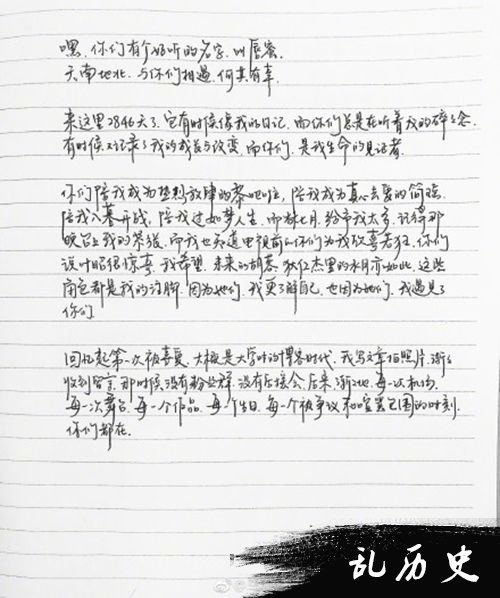 嘿，你们有个好听的名字，叫唇蜜。
天南地北，与你们相遇，何其有幸。
来这里2846天了，它有时候像我的日记，而你们总是在听着我的碎碎念
有时候又记录了我的成长与改变，而你们，是我生命的见证者。
你们陪我成为热烈放肆的黎吧啦，陪我成为真心去爱的简瑶
陪我入幕开战，陪我过如梦人生，而林七月，给予我太多，记得那
晚台上我的紧张，而我也知道电视前的你们为我欢喜若狂，你们
说叶昭很惊喜，我希望，未来的胡泰，狄仁杰里的水月亦如此，这些
角色都是我的注脚，因为她们，我更了解自己，也因为她们，我遇见了
你们
回忆起第一次被喜爱，大概是大学时的博客时代，我写文章拍照片，渐渐
收到留言，那时候没有粉丝群，没有后援会，后来，渐渐地，每一次机场
每一次舞台，每一个作品，每个生日，每一个被争议和喧嚣包围的时刻
你们都在。
乱历史